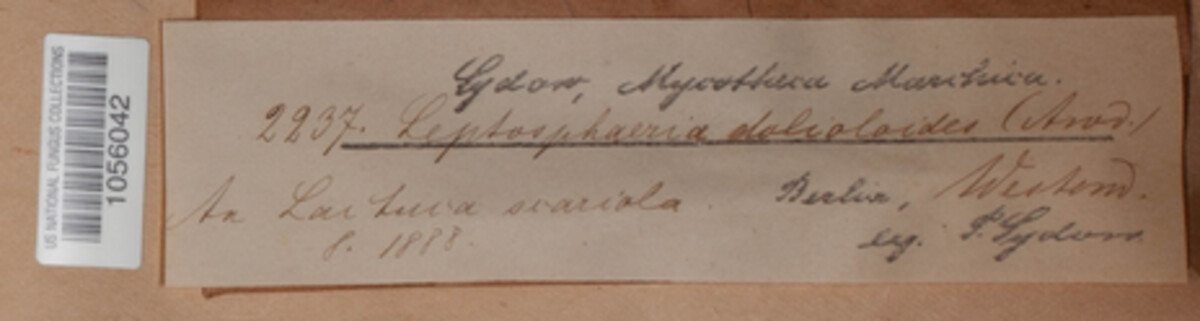 US NATIONAL FUNGUS COLLECTIONS
1056042
Sydow, Mycotheca Marchica.
2237. Leptosphaeria dolioloides (Awd.)
An Lactuca scariola. Berlin, Westend.
8. 1888. leg. P. Sydow